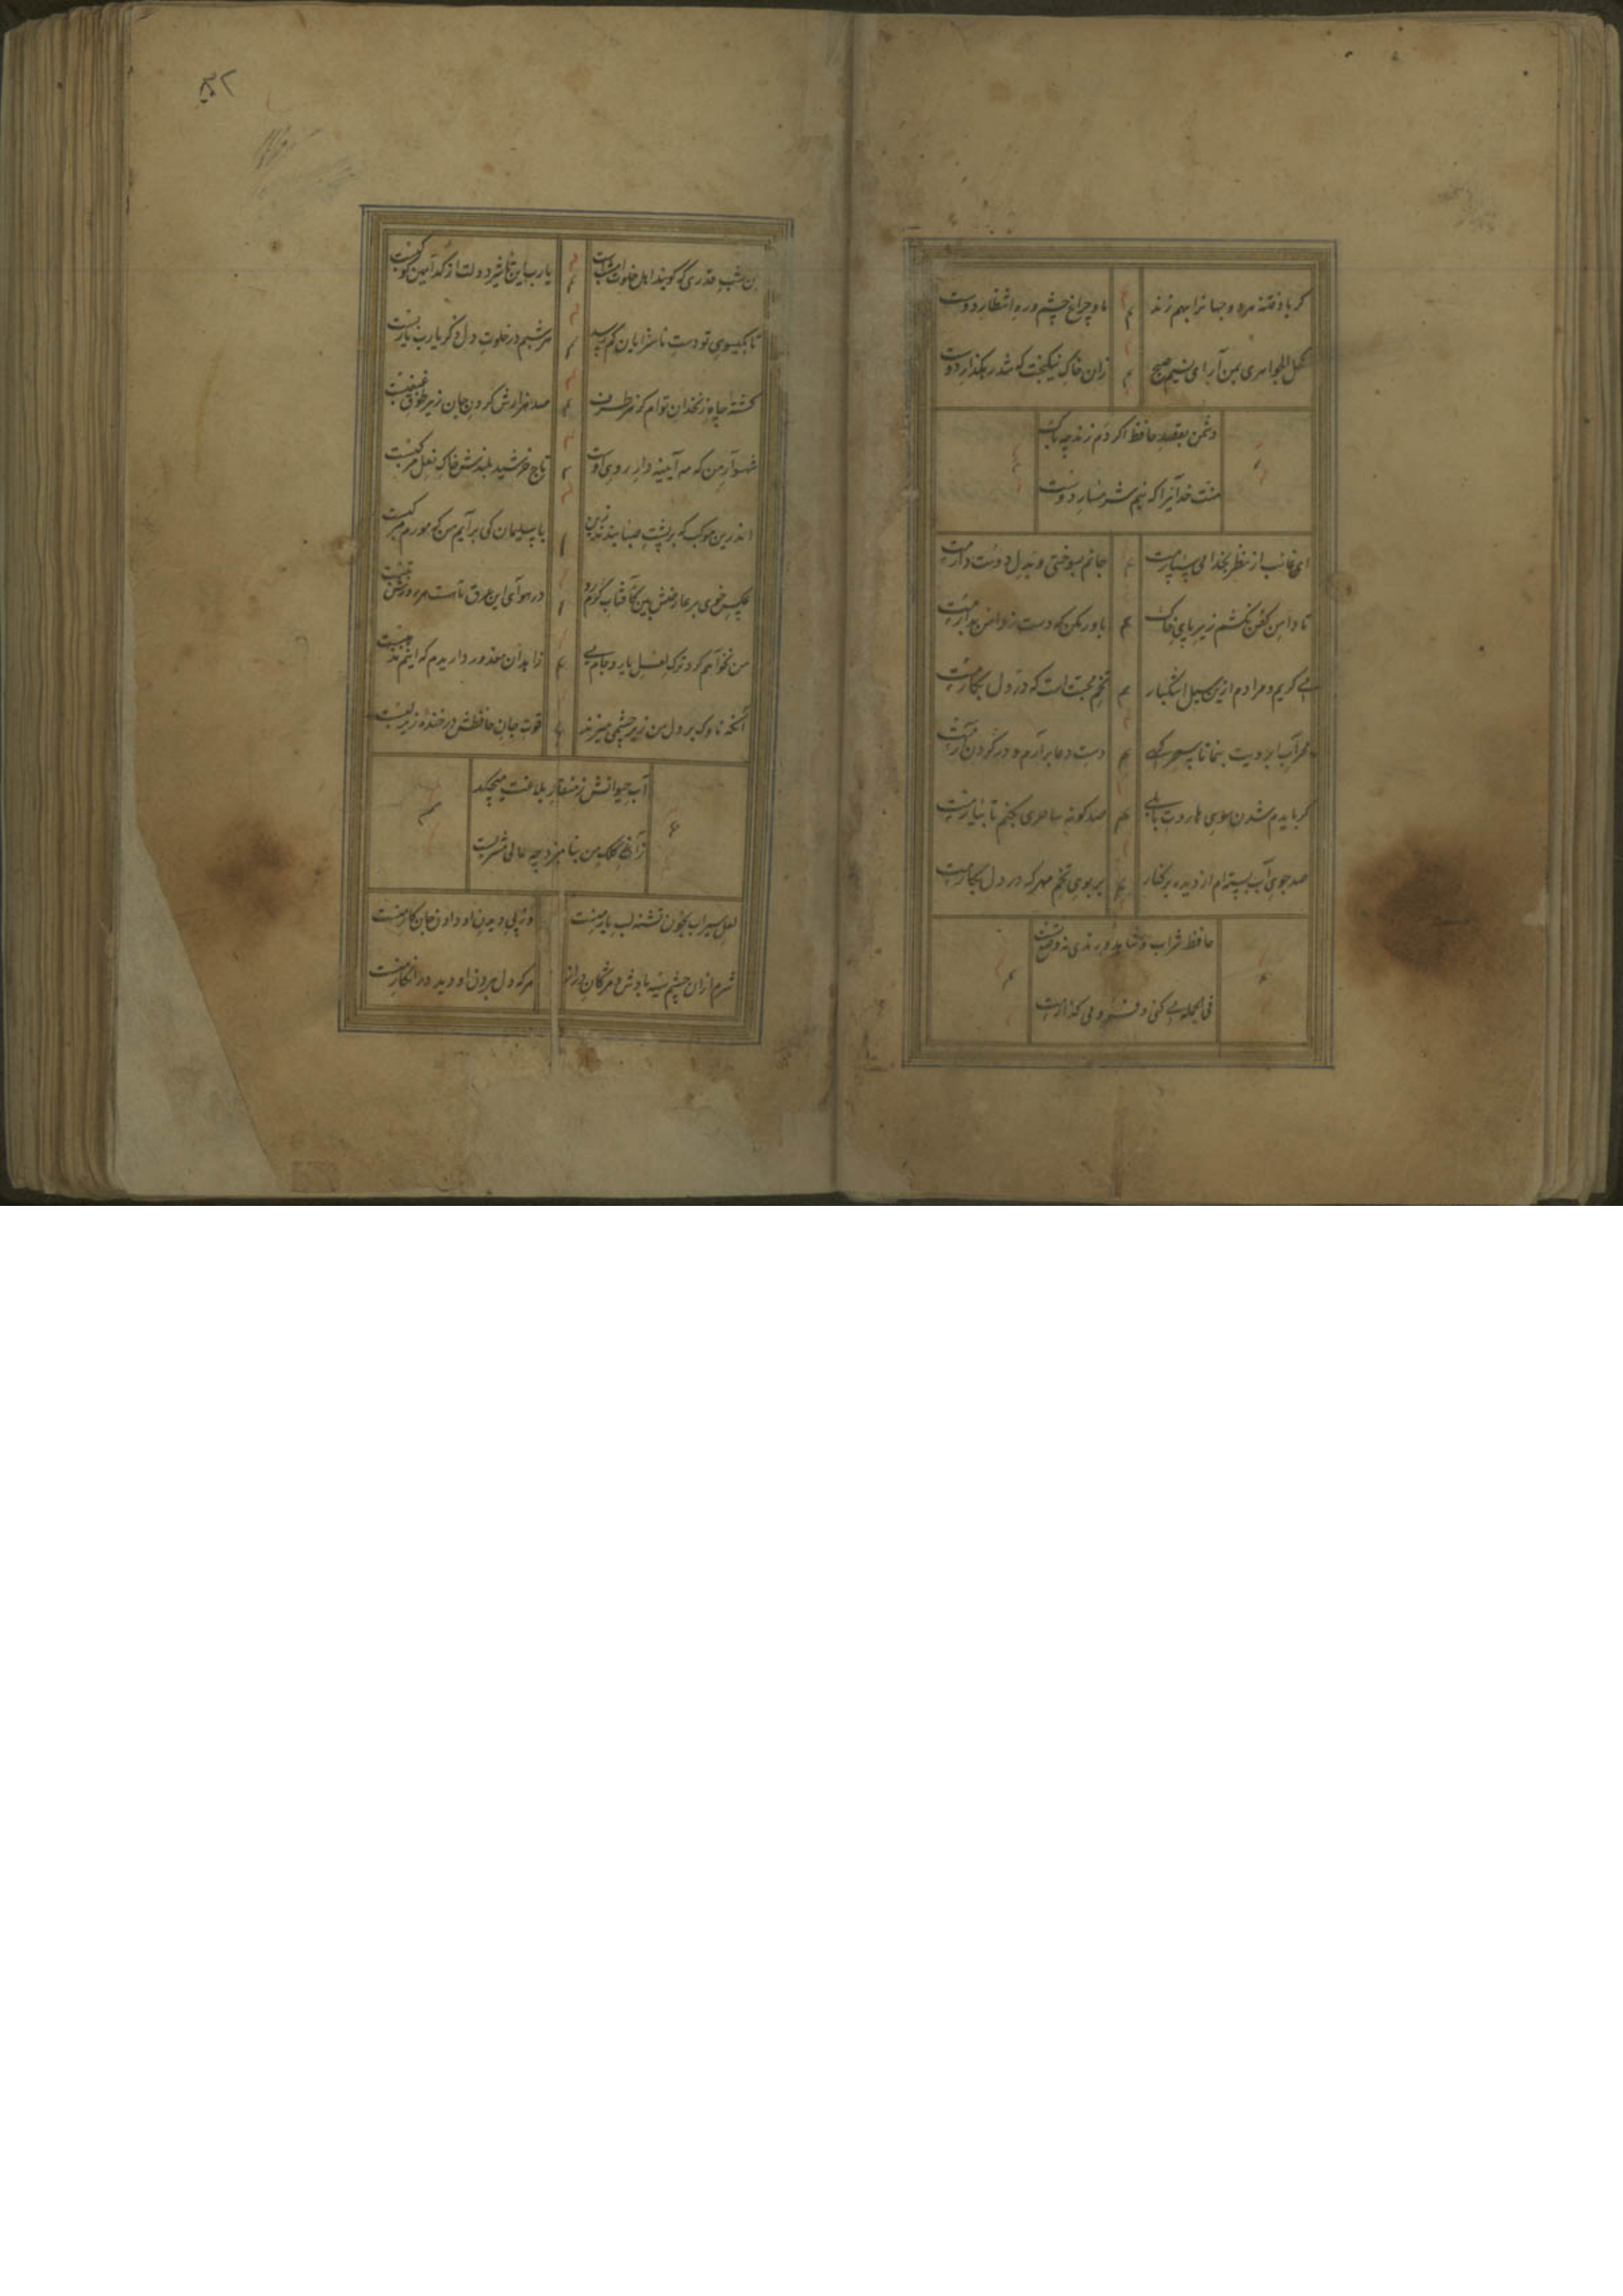 گر باد فتنه هر دو جهانرا بهم زند
ما و چراغ چشم و ره انتظار دوست
کحل الجواهری بمن آر ای نسیم صبح
زان خاک نیکبخت که شد رهگذار دوست
دشمن بقصد حافظ اگر دم زند چه باک
منت خدایرا که نیم شرمسار دوست
ای غائب از نظر بخدا می سپارمت
جانم بسوختی و بدل دوست دارمت
تا دامن کفن نکشم زیر پای خاک
باور مکن که دست ز دامن بدارمت
می گریم و مرادم ازین سیل اشکبار
تخم محبت است که در دل بکارمت
محراب ابرویت بنما تا سحرگهی
دست دعا برآرم و در گردن آرمت
گر بایدم شدن سوی هاروت بابلی
صد گونه ساحری بکنم تا بیارمت
صد جوی آب بسته ام از دیده بر کنار
بر بوی تخم مهر که در دل بکارمت
حافظ شراب و شاهد و رندی نه وضع تست
فی الجمله می کنی و فرو می گذارمت
۵۲
آن شب قدری که گویند اهل خلوت امشبست
یارب این تأثیر دولت از کدامین کوکبست
تا بگیسوی تو دست ناسزایان کم رسد
هر شبم در خلوت دل ذکر یارب یاربست
کشته چاه زنخدان توام کز هر طرف
صد هزارش گردن جان زیر طوق غبغبست
شهسوار من که مه آیینه دار روی اوست
تاج خورشید بلندش خاک نعل مرکبست
اندرین موکب که بر پشت صبا بندند زین
با سلیمان کی برآیم من که مورم مرکبست
عکس خوی بر عارضش بین کآفتاب گرم رو
در هوای این عرق تا هست هر روزش تبست
من نخواهم کرد ترک لعل یار و جام می
زاهدان معذور داریدم که اینم مذهبست
آنکه ناوک بر دل من زیر چشمی میزند
قوت جان حافظش در خنده زیر لبست
آب حیوانش ز منقار بلاغت میچکد
زاغ کلک من بنامیزد چه عالی مشربست
لعل سیراب بخون تشنه لب یار منست
وز پی دیدن او دادن جان کار منست
شرم از آن چشم سیه بادش و مژگان دراز
هر که دل بردن او دید و در انکار منست